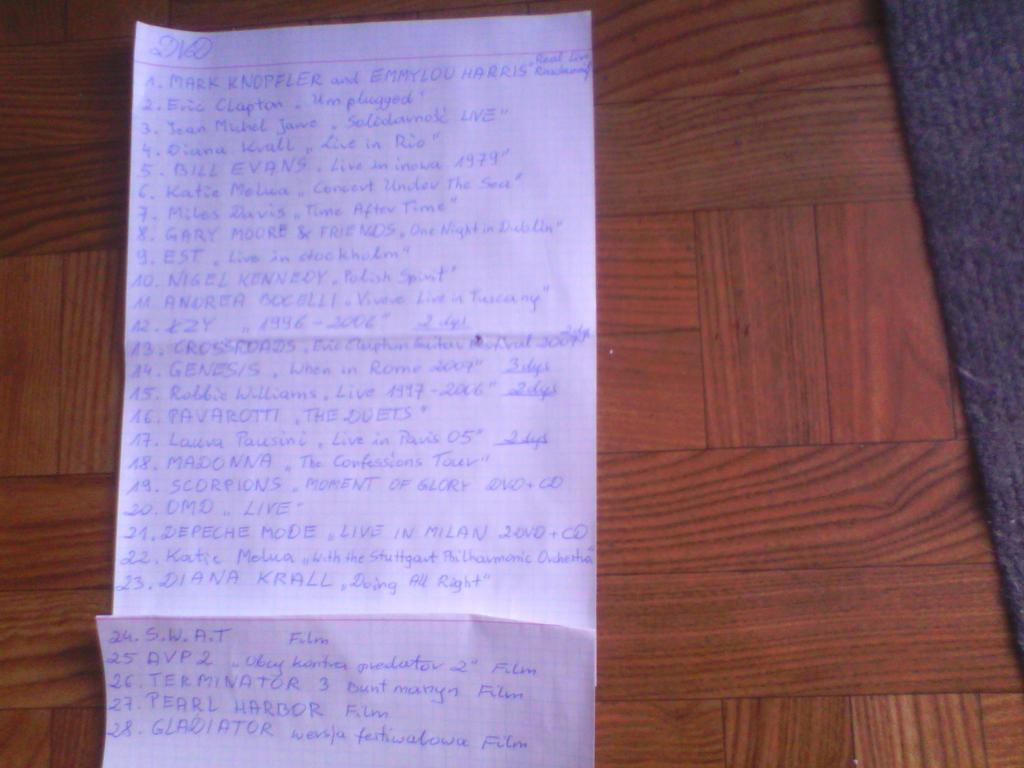 DVD
1. MARK KNOPFLER and EMMYLOU HARRIS "Real Live Roadrunning"
2. Eric Clapton „Unplugged"
3. Jean Michel Jarre „Solidarność LIVE"
4. Diana Krall „Live in Rio"
5. BILL EVANS „Live in inowa 1979"
6. Katie Melua „Concert Under The Sea"
7. Miles Davis „Time After Time"
8. GARY MOORE & FRIENDS „One Night in Dublin"
9. EST „Live in stockholm"
10. NIGEL KENNEDY „Polish Spirit"
11. ANDREA BOCELLI „Vivere Live in Tuscany"
12. KZY „1996-2006" 2 dys
13. CROSSROADS „Eric Clapton Guitar Festival 2007" 2dys
14. GENESIS „When in Rome 2007" 3dys
15. Robbie Williams „Live 1997-2006" 2dys
16. PAVAROTTI „THE DUETS"
17. Laura Pausini „Live in Paris 05" 2dys
18. MADONNA „The Confessions Tour"
19. SCORPIONS „MOMENT OF GLORY DVD+CD
20. OMD „LIVE"
21. DEPECHE MODE „LIVE IN MILAN 2DVD+CD
22. Katie Melua „With the Stuttgart Philharmonic Orchestra
23. DIANA KRALL „Doing All Right"
24. S.W.A.T Film
25 AVP2 „Obcy kontra predator 2" Film
26. TERMINATOR 3 Bunt maszyn Film
27. PEARL HARBOR Film
28. GLADIATOR wersja festiwalowa Film